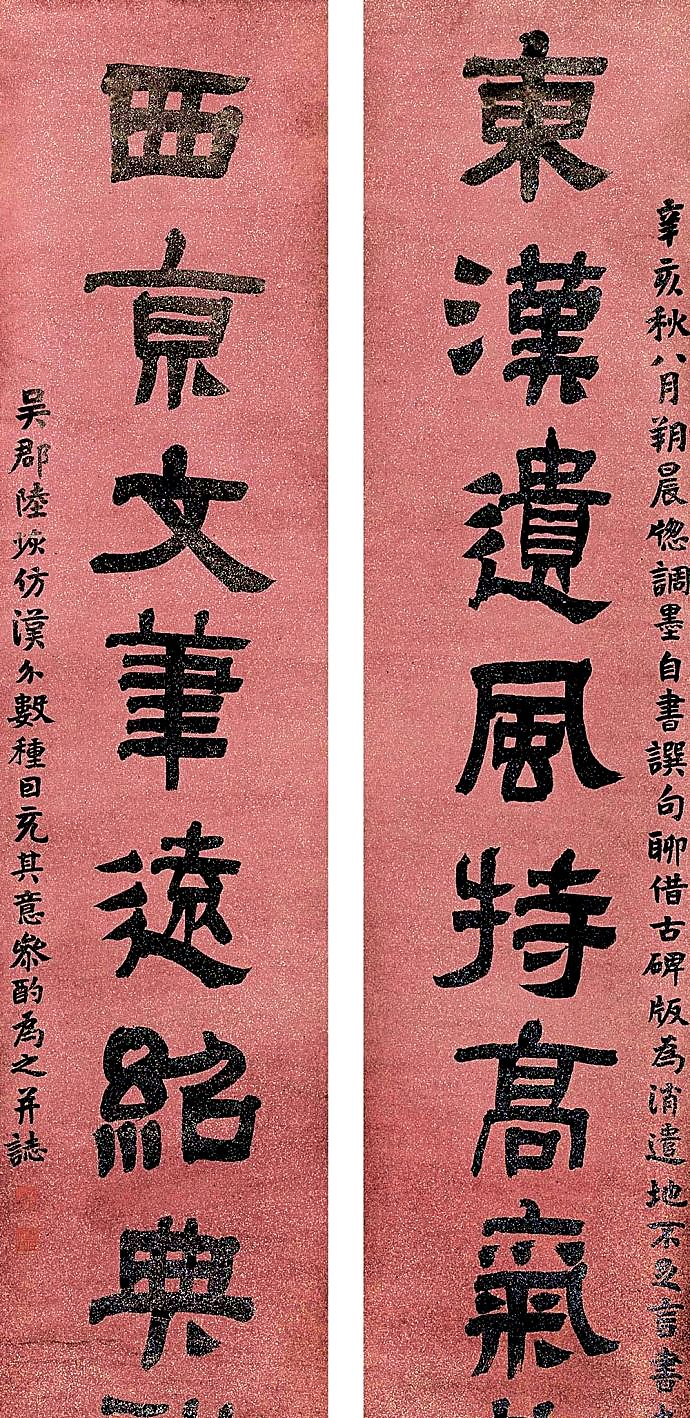 辛亥秋八月朔晨惚調墨自書譔句聊借古碑版為消遣地不足言書
東漢遺風特高氣
西京文筆遠紹典
吳郡陸恢仿漢分數種因充其意參酌為之并誌